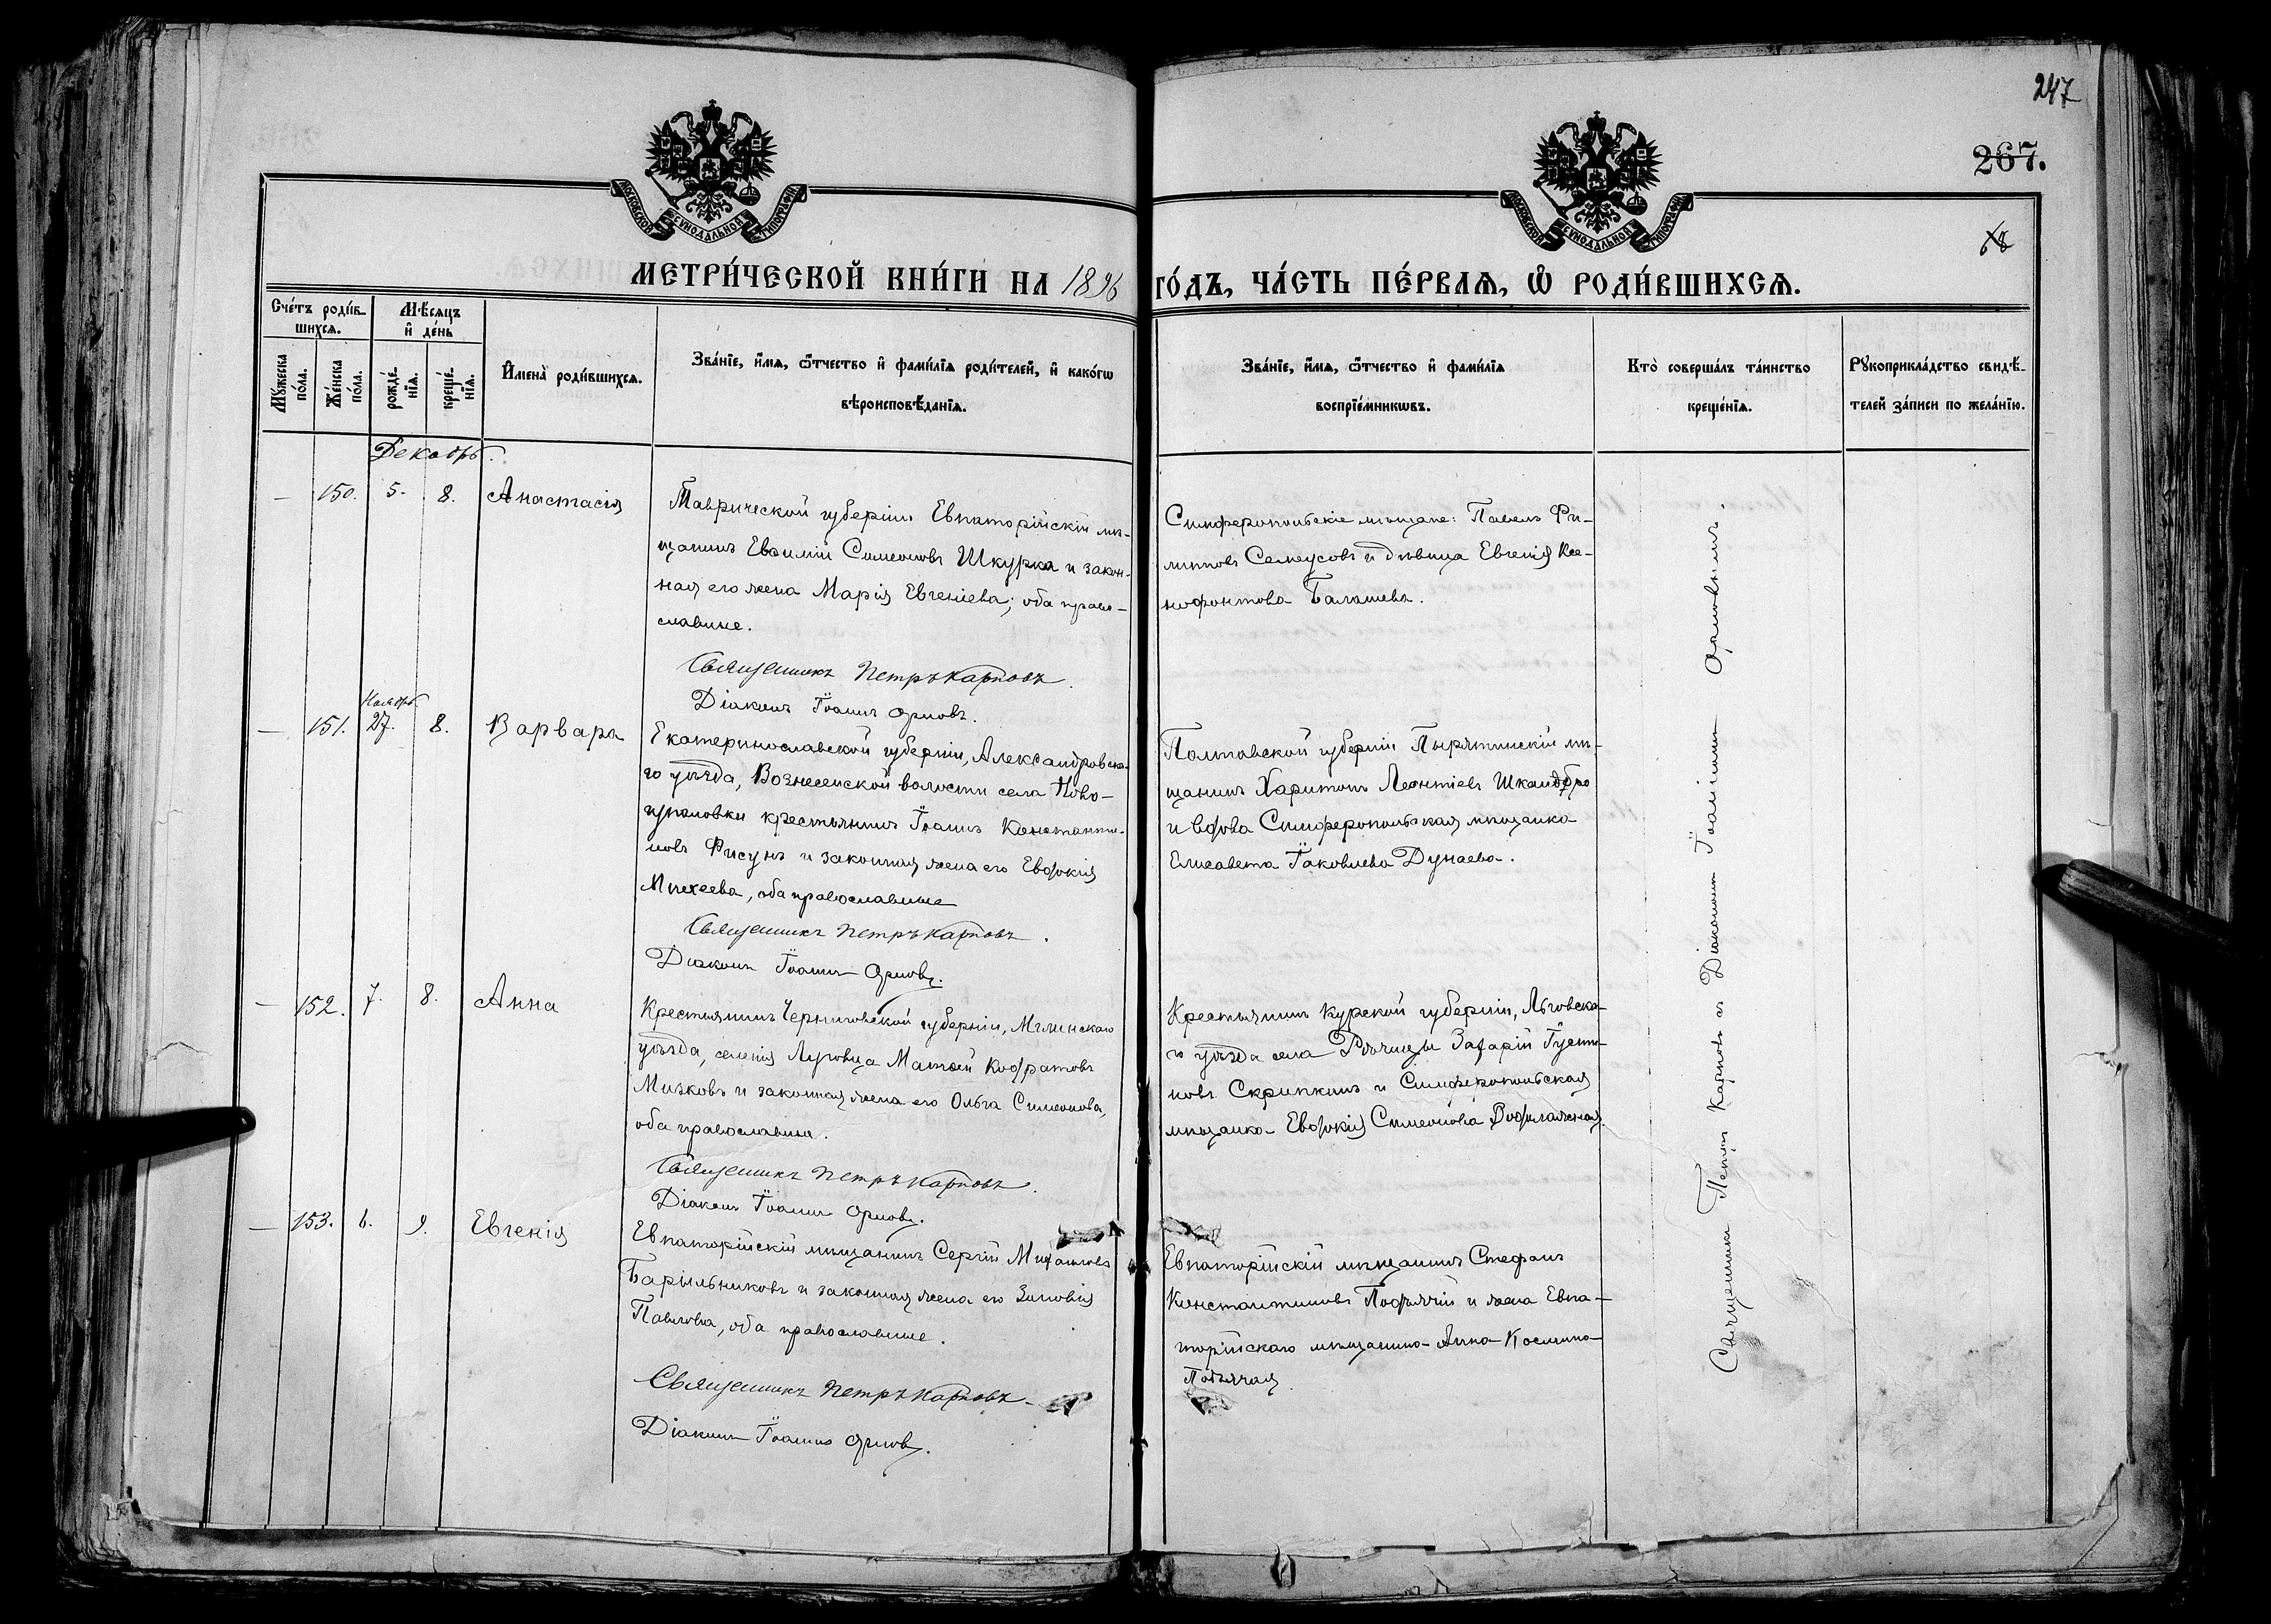 247
267.
68
МОСКОВСКОЙ СѴНОДАЛЬНОЙ ТИПОГРАФІИ
МОСКОВСКОЙ СѴНОДАЛЬНОЙ ТИПОГРАФІИ
МЕТРИ́ЧЕСКОЙ КНИ́ГИ НА 1896 ГО́ДЪ, ЧА́СТЬ ПЕ́РВАѦ, Ѿ РОДИ́ВШИХСѦ.
Сче́тъ роди́в-
шихсѧ.
Мꙋ́жеска по́ла.
Же́нска по́ла.
Мѣ́сѧцъ
и҆ де́нь
рожде́-
нїѧ.
креще́-
нїѧ.
И҆мена̀ роди́вшихсѧ.
Зва́нїе, и҆́мѧ, ѻ҆́тчество и҆ фами́лїѧ роди́телей, и҆ како́гѡ
вѣроисповѣ́данїѧ.
Зва́нїе, и҆́мѧ, ѻ҆́тчество и҆ фами́лїѧ
воспрїе́мникѡвъ.
Кто̀ соверша́лъ та́инство
креще́нїѧ.
Рꙋкоприкла́дство свидѣ́-
телей за́писи по жела́нїю.
Декабрь.
— 150. 5. 8. Анастасія
Таврической губерніи Евпаторійскій мѣ-
щанинъ Евѳимій Симеоновъ Шкурка и закон-
ная его жена Марія Евгеніева; оба право-
славные.
Священникъ Петръ Карповъ.
Діаконъ Іоаннъ Орловъ.
Симферопольскіе мѣщане: Павелъ Фи-
липповъ Семеусовъ и дѣвица Евгенія Ксе-
нофонтова Балашева.
Ноябрь
— 151. 27. 8. Варвара
Екатеринославской губерніи, Александровска-
го уѣзда, Вознесенской волости села Ново-
гупаловки крестьянинъ Іоаннъ Константи-
новъ Фисунъ и законная жена его Евдокія
Михеева, оба православные
Священникъ Петръ Карповъ.
Діаконъ Іоаннъ Орловъ.
Полтавской губерніи Пырятинскій мѣ-
щанинъ Харитонъ Леонтіевъ Шкандыбро
и вдова Симферопольская мѣщанка
Елисавета Іаковлева Дунаева.
— 152. 7. 8. Анна
Крестьянинъ Черниговской губерніи, Мглинскаго
уѣзда, селенія Луговца Матѳей Кодратовъ
Мизковъ и законная жена его Ольга Симеонова,
оба православные.
Священникъ Петръ Карповъ.
Діаконъ Іоаннъ Орловъ.
Крестьянинъ Курской губерніи, Льговска-
го уѣзда села Рѣчицы Захарій Іусти-
новъ Скрипкинъ и Симферопольская
мѣщанка Евдокія Симеонова
— 153. 6. 9. Евгенія
Евпаторійскій мѣщанинъ Сергій Михаиловъ
Барильниковъ и законная жена его Зиновія
Павлова, оба православные.
Священникъ Петръ Карповъ.
Діаконъ Іоаннъ Орловъ.
Евпаторійскій мѣщанинъ Стефанъ
Константиновъ Подъячій и жена Евпа-
торійскаго мѣщанина Анна Космина
Подъячая.
Священникъ Петръ Карповъ съ Діакономъ Іоанномъ Орловымъ.